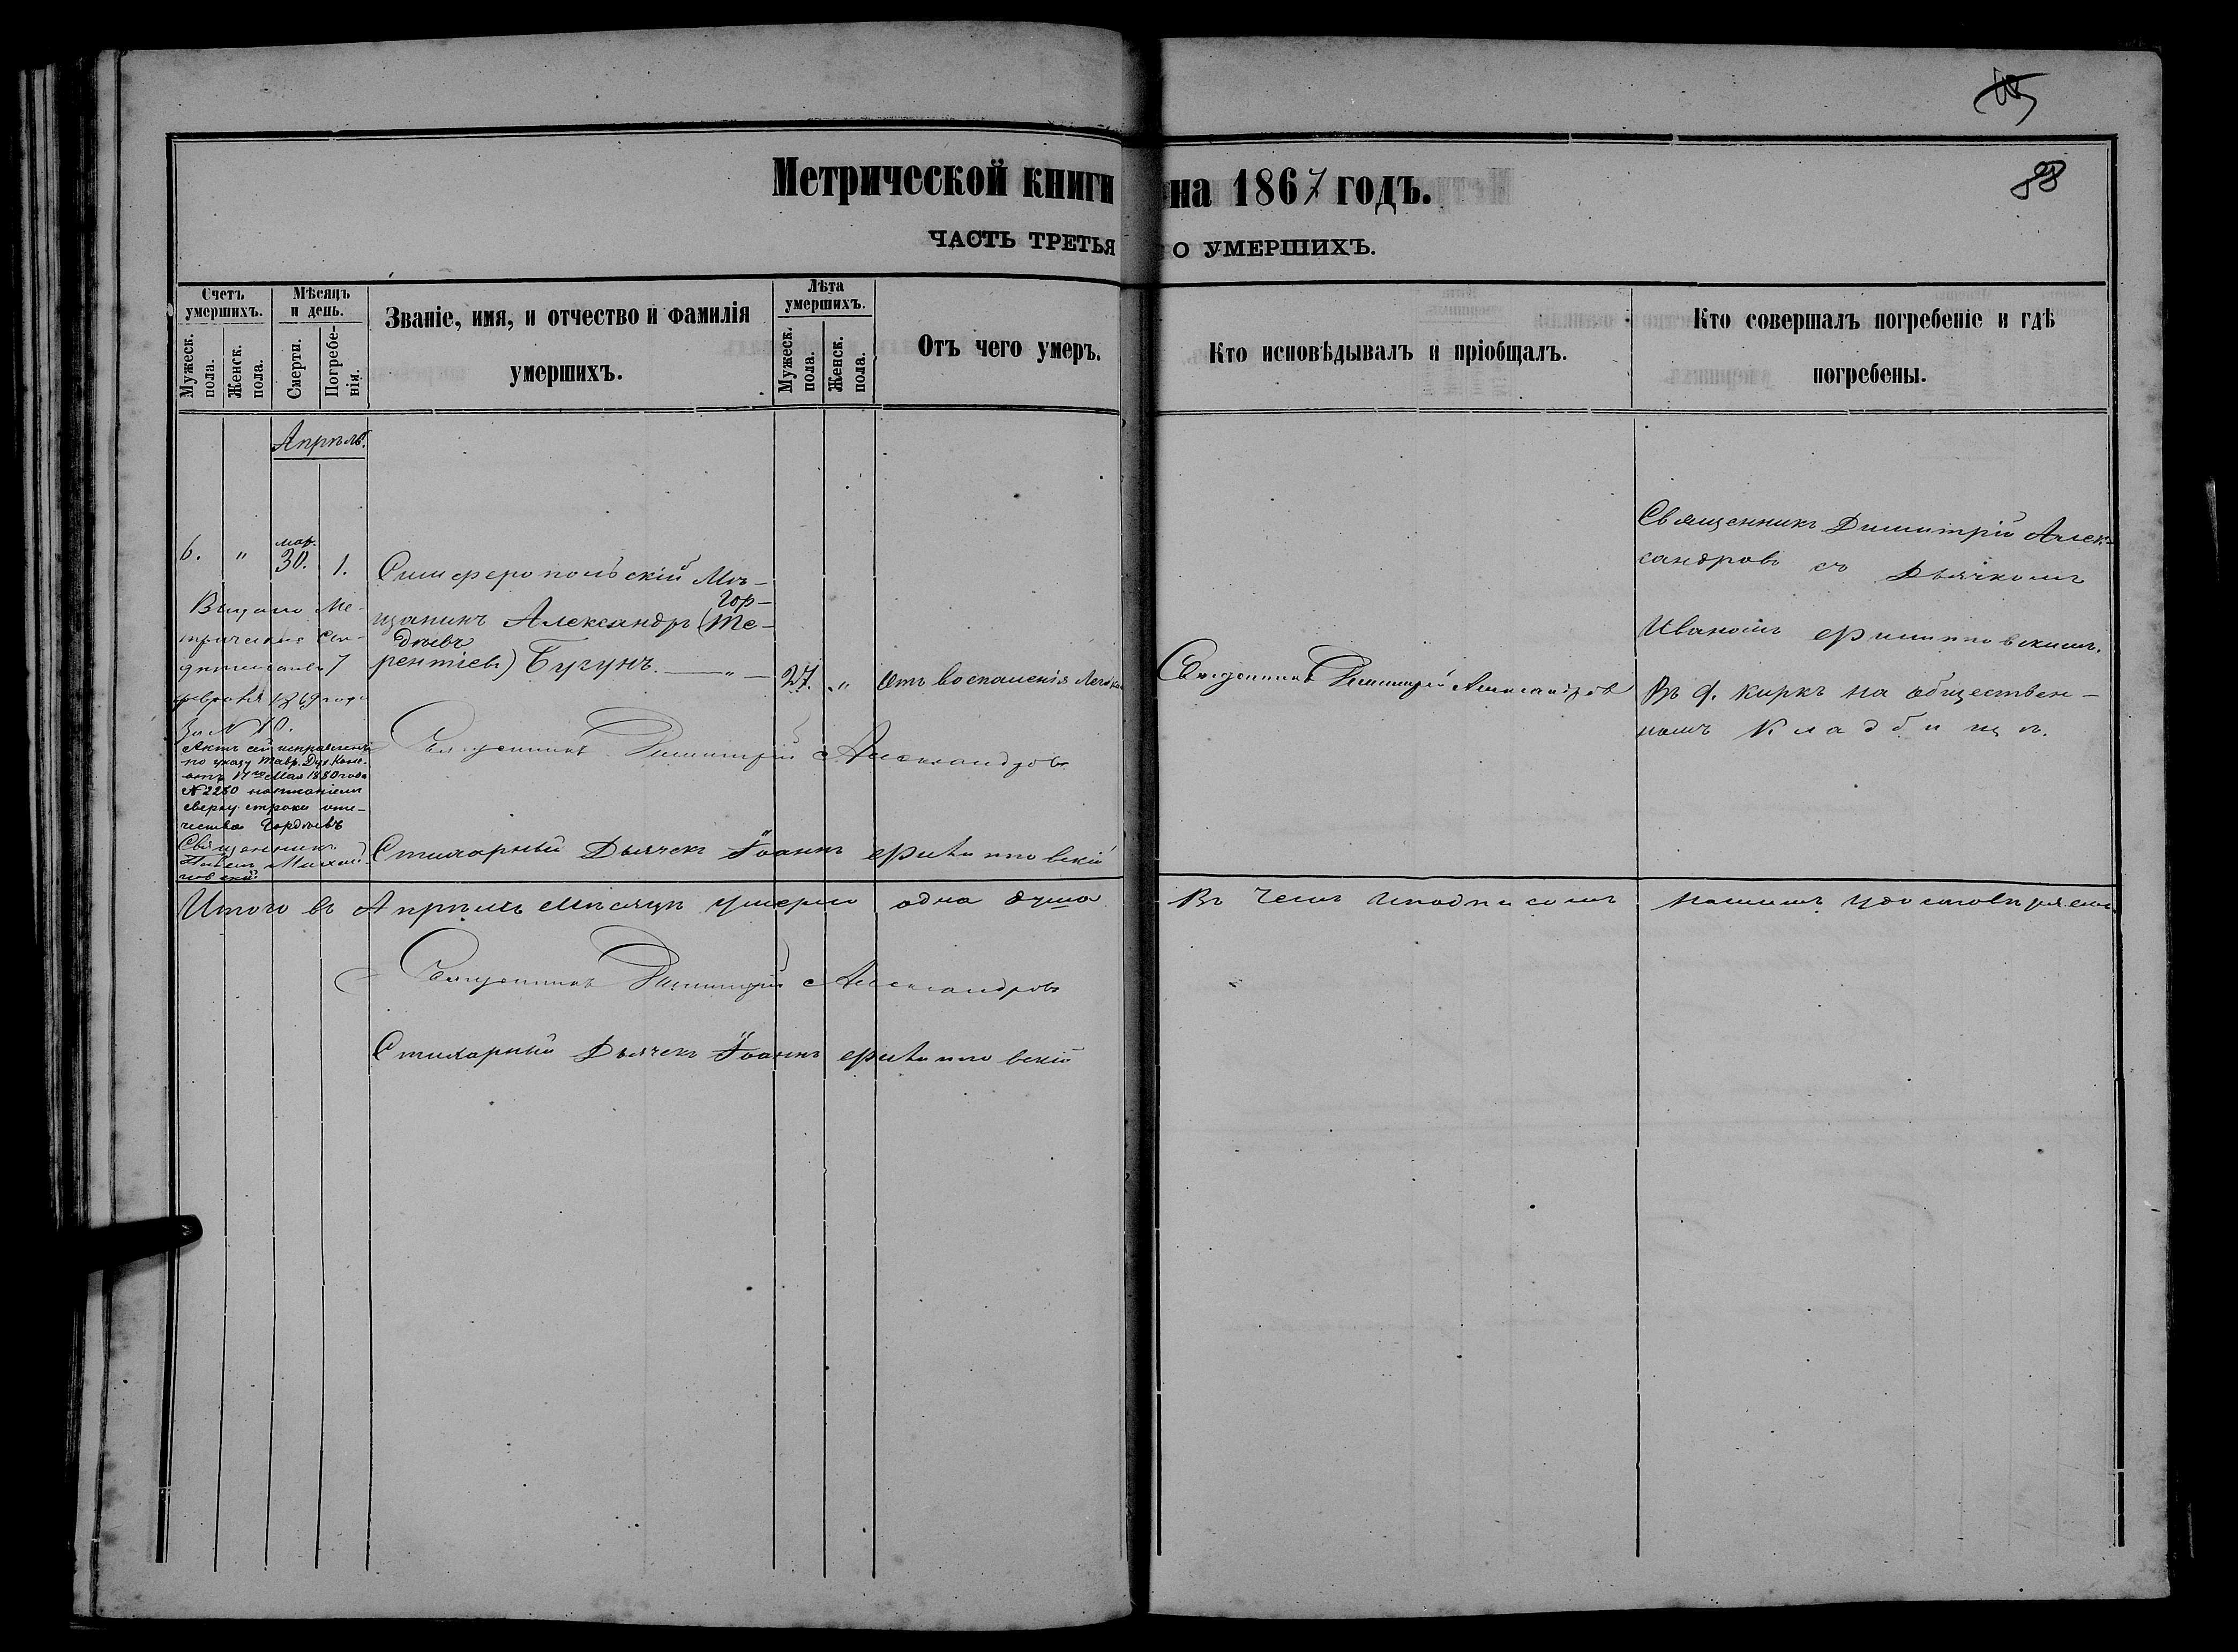 88
Метрической книги на 1867 годъ.
ЧАСТЬ ТРЕТЬЯ О УМЕРШИХЪ.
Счетъ умершихъ.
Мужеск. пола.
Женск. пола.
Мѣсяцъ и день.
Смерти.
Погребенія.
Званіе, имя, и отчество и фамилія
умершихъ.
Лѣта умершихъ.
Мужеск. пола.
Женск. пола.
Отъ чего умеръ.
Кто исповѣдывалъ и пріобщалъ.
Кто совершалъ погребеніе и гдѣ
погребены.
Апрѣль.
6. " мар. 30. 1.
Симферопольскій Мѣ-
Гор-
щанинъ Александръ (Те-
дѣевъ
рентіевъ) Бугунъ. — " —
27. "
Отъ воспаленія Легких
Священникъ Димитрій Александровъ
Священникъ Димитрій Алек-
сандровъ съ Дьячкомъ
Иваномъ Филипповскимъ.
Въ ф. киркъ на обществен-
номъ Кладбищѣ.
Выдано Ме-
трическое Сви-
дѣтельство 7
февраля 1869 года
За N 10.
Актъ сей исправленъ
по указу Тавр. Дух. Конс.
отъ 17го Мая 1880 года
№ 2280 написаніемъ
сверху строки оте-
чества Гордѣевъ
Священникъ
Священникъ Димитрій Александровъ
Стихарный Дьячекъ Іоаннъ Филипповскій
Итого въ Апрѣлѣ Мѣсяцѣ умерло одна душа Въ чемъ и подписомъ нашимъ удостовѣряемъ
Священникъ Димитрій Александровъ
Стихарный Дьячекъ Іоаннъ Филипповскій